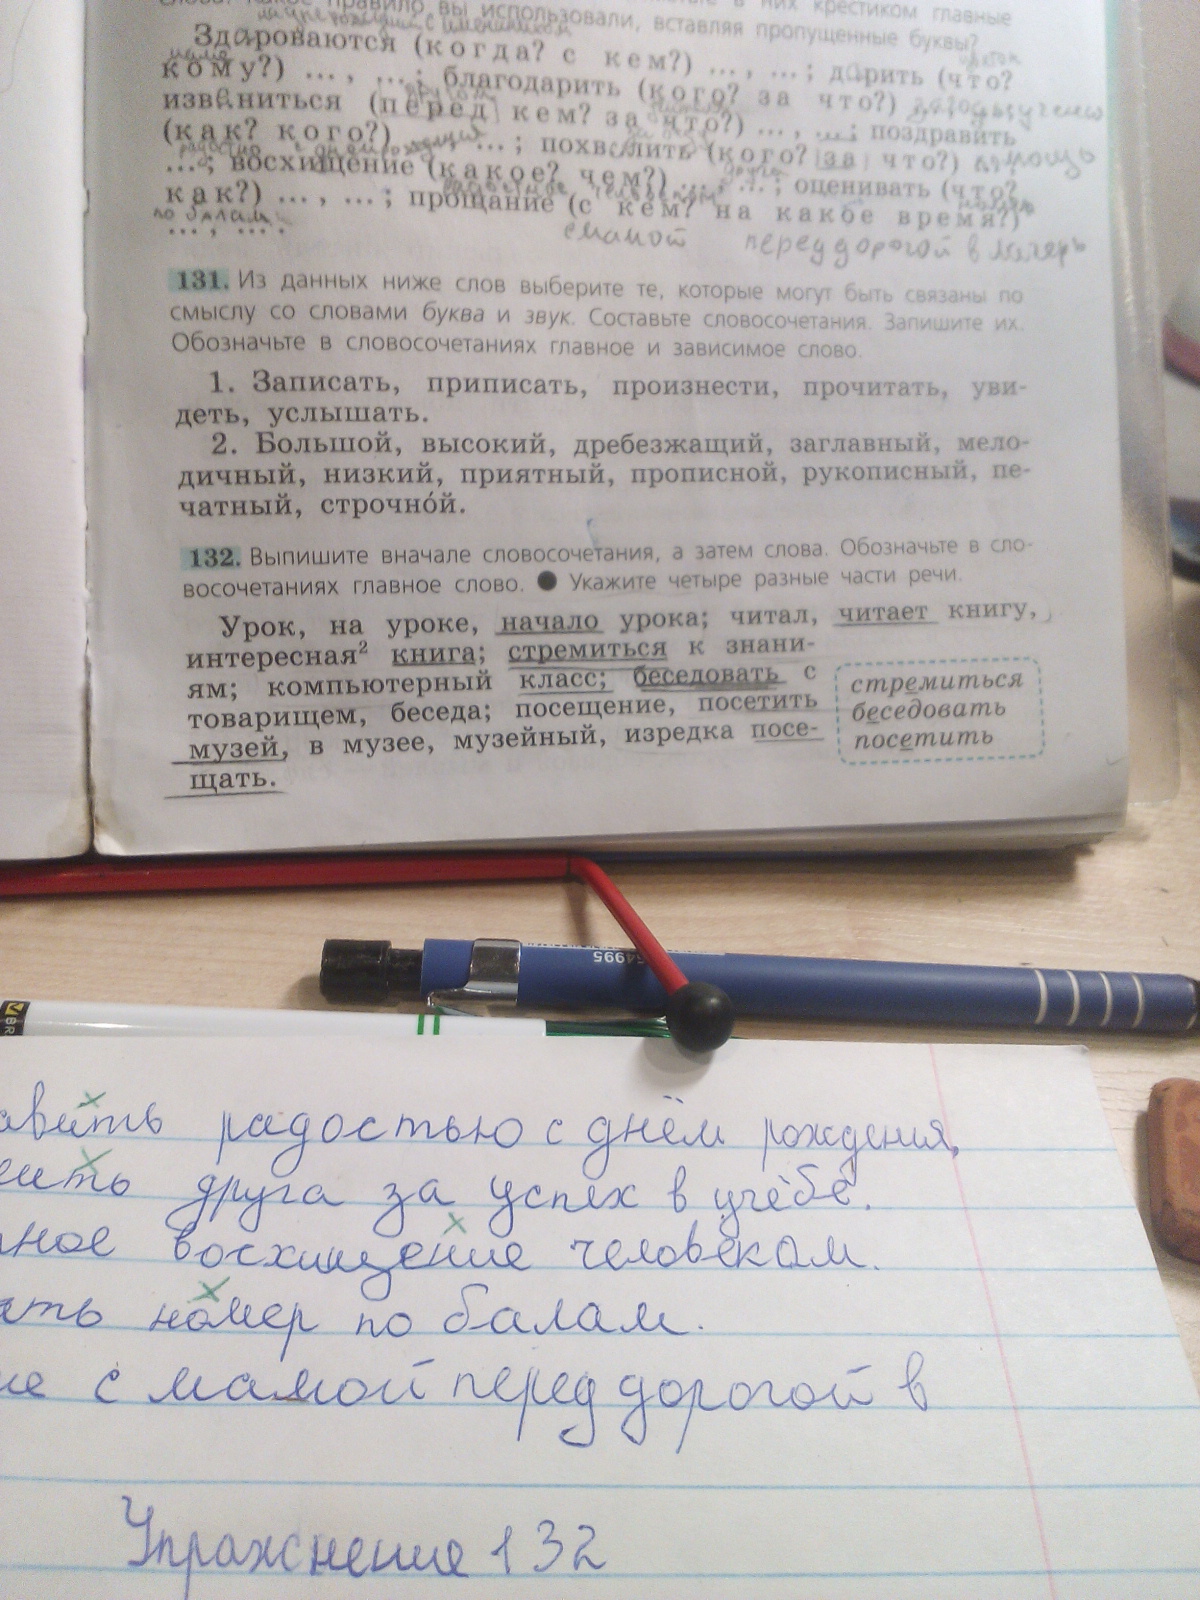 вы использовали, вставляя пропущенные буквы?
в них крестиком главные
Здароваются (когда? с кем?) ... , ... ; дарить (что?
кому?) ... , ... ; благодарить (кого? за что?)
извениться (перед кем? за что?) ... , ... ; поздравить
(как? кого?) ... ; похвалить (кого? за что?) помощь
... ; восхищение (какое? чем?) ... , ... ; оценивать (что?
как?) ... , ... ; прощание (с кем? на какое время?)
по балам
... , ... .
с мамой перед дорогой в лагерь
131. Из данных ниже слов выберите те, которые могут быть связаны по
смыслу со словами буква и звук. Составьте словосочетания. Запишите их.
Обозначьте в словосочетаниях главное и зависимое слово.
1. Записать, приписать, произнести, прочитать, уви-
деть, услышать.
2. Большой, высокий, дребезжащий, заглавный, мело-
дичный, низкий, приятный, прописной, рукописный, пе-
чатный, строчно́й.
132. Выпишите вначале словосочетания, а затем слова. Обозначьте в сло-
восочетаниях главное слово. ● Укажите четыре разные части речи.
Урок, на уроке, начало урока; читал, читает книгу,
интересная² книга; стремиться к знани-
ям; компьютерный класс; беседовать с
товарищем, беседа; посещение, посетить
музей, в музее, музейный, изредка посе-
щать.
стремиться
беседовать
посетить
64995
BR
авить радостью с днём рождения.
ить друга за успех в учёбе.
ное восхищение человеком.
ать номер по балам.
ие с мамой перед дорогой в
Упражнение 132